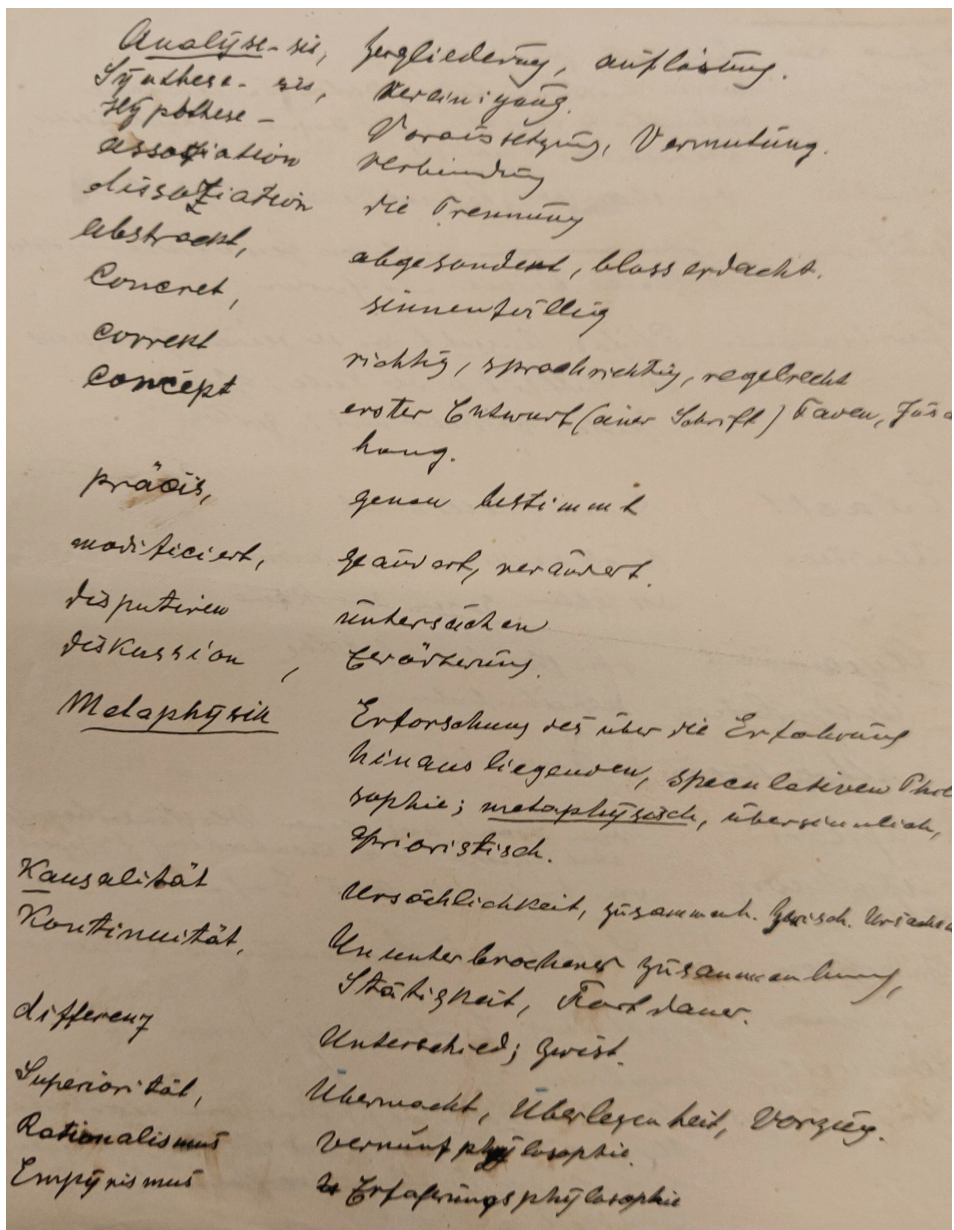 Analyse-sis, Zergliederung, auflösung.
Synthese- sis, Vereinigung.
Hypothese- Voraussetzung, Vermutung.
assoziation verbindung
dissoziation die Trennung
abstrackt, abgesondert, bloss erdacht.
Concret, sinnenfällig
correkt richtig, sprachrichtig, regelrecht
concept erster Entwurf (einer Schrift)
hang.
präcis, genau bestimmt
modificiert, geändert, verändert.
disputiren untersuchen
diskussion, Erörterung.
Metaphysik Erforschung des über die Erfahrung
hinaus liegenden, speculativen Philo
sophie; metaphysisch, übersinnlich,
aprioristisch.
Kausalität Ursächlichkeit, zusammenh. zwisch. Ursache
Kontinuität, Ununterbrochener zusammenhang,
Stätigkeit, Fortdauer.
differenz Unterschied; zwist.
Superiorität, Übermacht, Überlegenheit, Vorzug.
Rationalismus Vernunfphylosophie.
Empyrismus Erfahrungsphylosophie